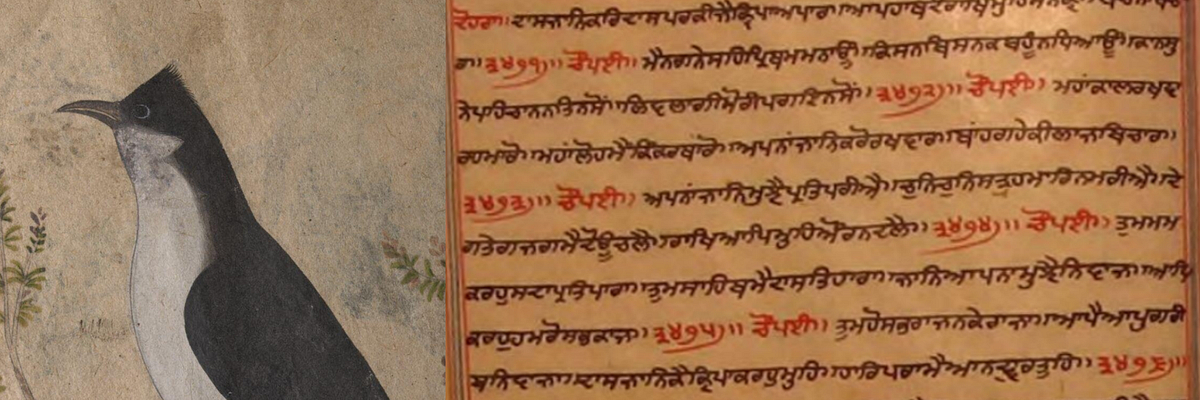 ਦੋਹਰਾ॥ਦਾਸਜਾਨਿਕਰਿਦਾਸਪਰਕੀਜੈਕ੍ਰਿਪਾਅਪਾਰ॥ਆਪਹਾਥਦੈਰਾਖ
ਰ॥ ਚੌਪਈ॥ ਮੈਨਗਨੇਸਹਿਪ੍ਰਿਥਮਮਨਾਊਂ॥ਕਿਸਨਬਿਸਨਕਬਹੂੰਨਧਿਆਊਂ॥ਕਾਨਸੁ
ਨੇਪਹਿਚਾਨਨਤਿਨਸੋਂ॥ਲਿਵਲਾਗੀਮੋਰੀਪਗਇਨਸੋਂ॥ ਚੌਪਈ॥ ਮਹਾਂਕਾਲਰਖਵ
ਰਹਮਾਰੋ॥ਮਹਾਂਲੋਹਮੈਕਿੰਕਰਥਾਂਰੋ॥ਅਪਨਾਂਜਾਨਿਕਰੋਰਖਵਾਰ॥ਬਾਂਹਗਹੇਕੀਲਾਜਬਿਚਾਰ॥
ਚੌਪਈ॥ ਅਪਨਾਂਜਾਨਿਮੁਝੈਪ੍ਰਤਿਪਰੀਐ॥ਚੁਨਿਚੁਨਿਸਤ੍ਰਹਮਾਰਿਮਰੀਐ॥ਦੇ
ਗਤੇਗਜਗਮੈਦੋਊਚਲੈ॥ਰਾਖਿਆਪਿਮੁਹਿਅੋਰਨਦਲੈ॥ ਚੌਪਈ॥ ਤੁਮਮਮ
ਕਰਹੁਸਦਾਪ੍ਰਤਿਪਾਰਾ॥ਤੁਮਸਾਹਿਬਮੈਦਾਸਤਿਹਾਰਾ॥ਜਾਨਿਆਪਨਾਮੁਝੈਨਿਵਾਜ॥ਆਪਿ
ਕਰਹੁਹਮਰੇਸਭਕਾਜ॥ ਚੌਪਈ॥ ਤੁਮਹੋਸਭਰਾਜਨਕੇਰਾਜਾ॥ਆਪੈਆਪੁਗਰੀ
ਬਨਿਵਾਜਾ॥ਦਾਸਜਾਨਿਕੈਕ੍ਰਿਪਾਕਰਹੁਮੁਹਿ॥ਹਾਰਿਪਰਾਮੈਆਨਦ੍ਵਾਰਤੁਹਿ॥